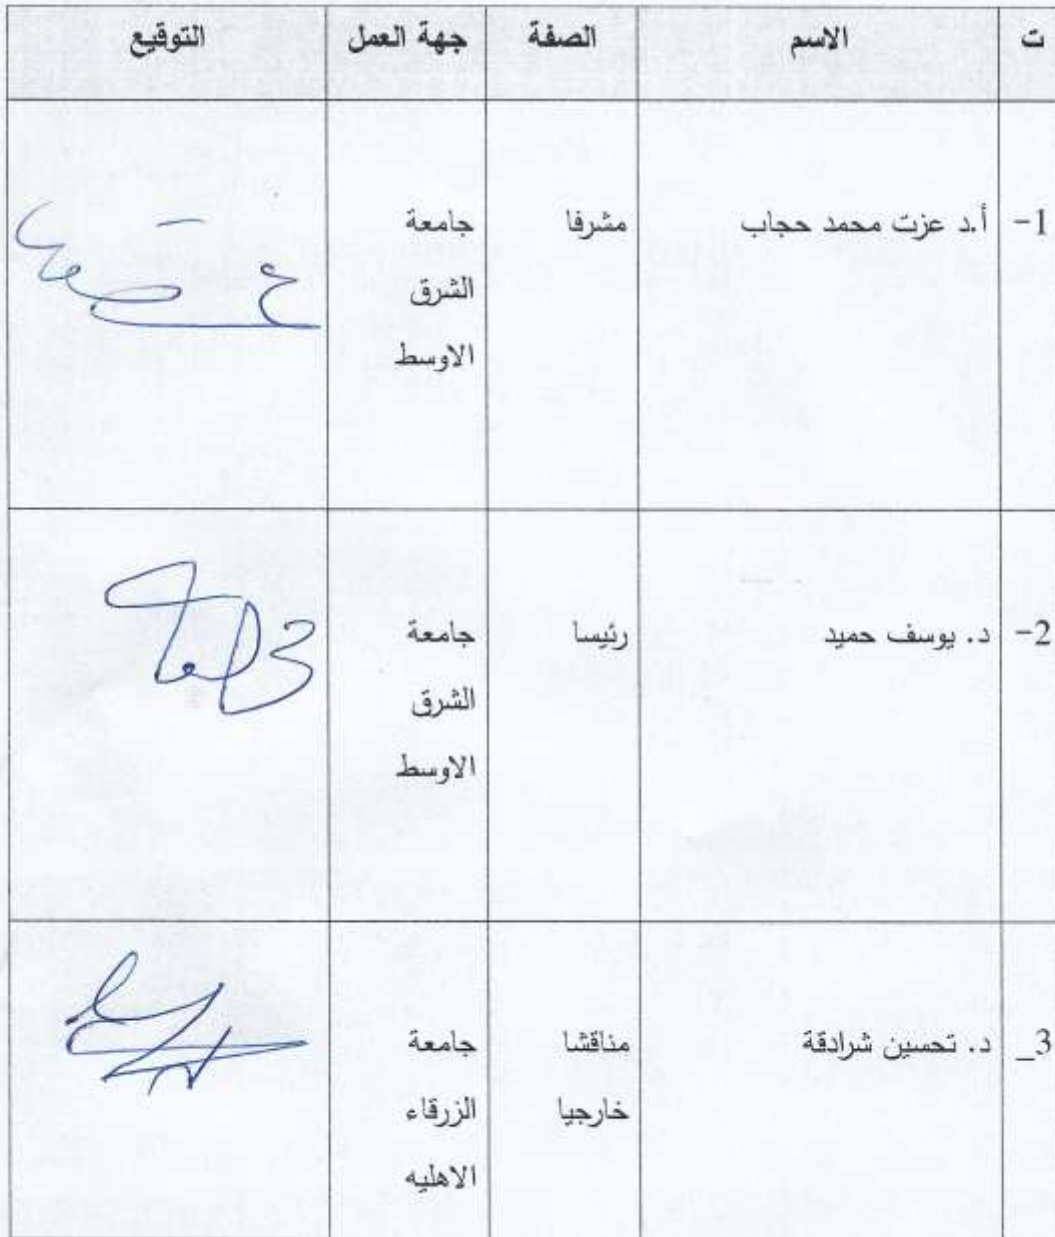 ت الاسم الصفة جهة العمل التوقيع
1- أ.د عزت محمد حجاب مشرفا جامعة
الشرق
الاوسط
2- د. يوسف حميد رئيسا جامعة
الشرق
الاوسط
3_ د. تحسين شرادقة مناقشا جامعة
خارجيا الزرقاء
الاهليه